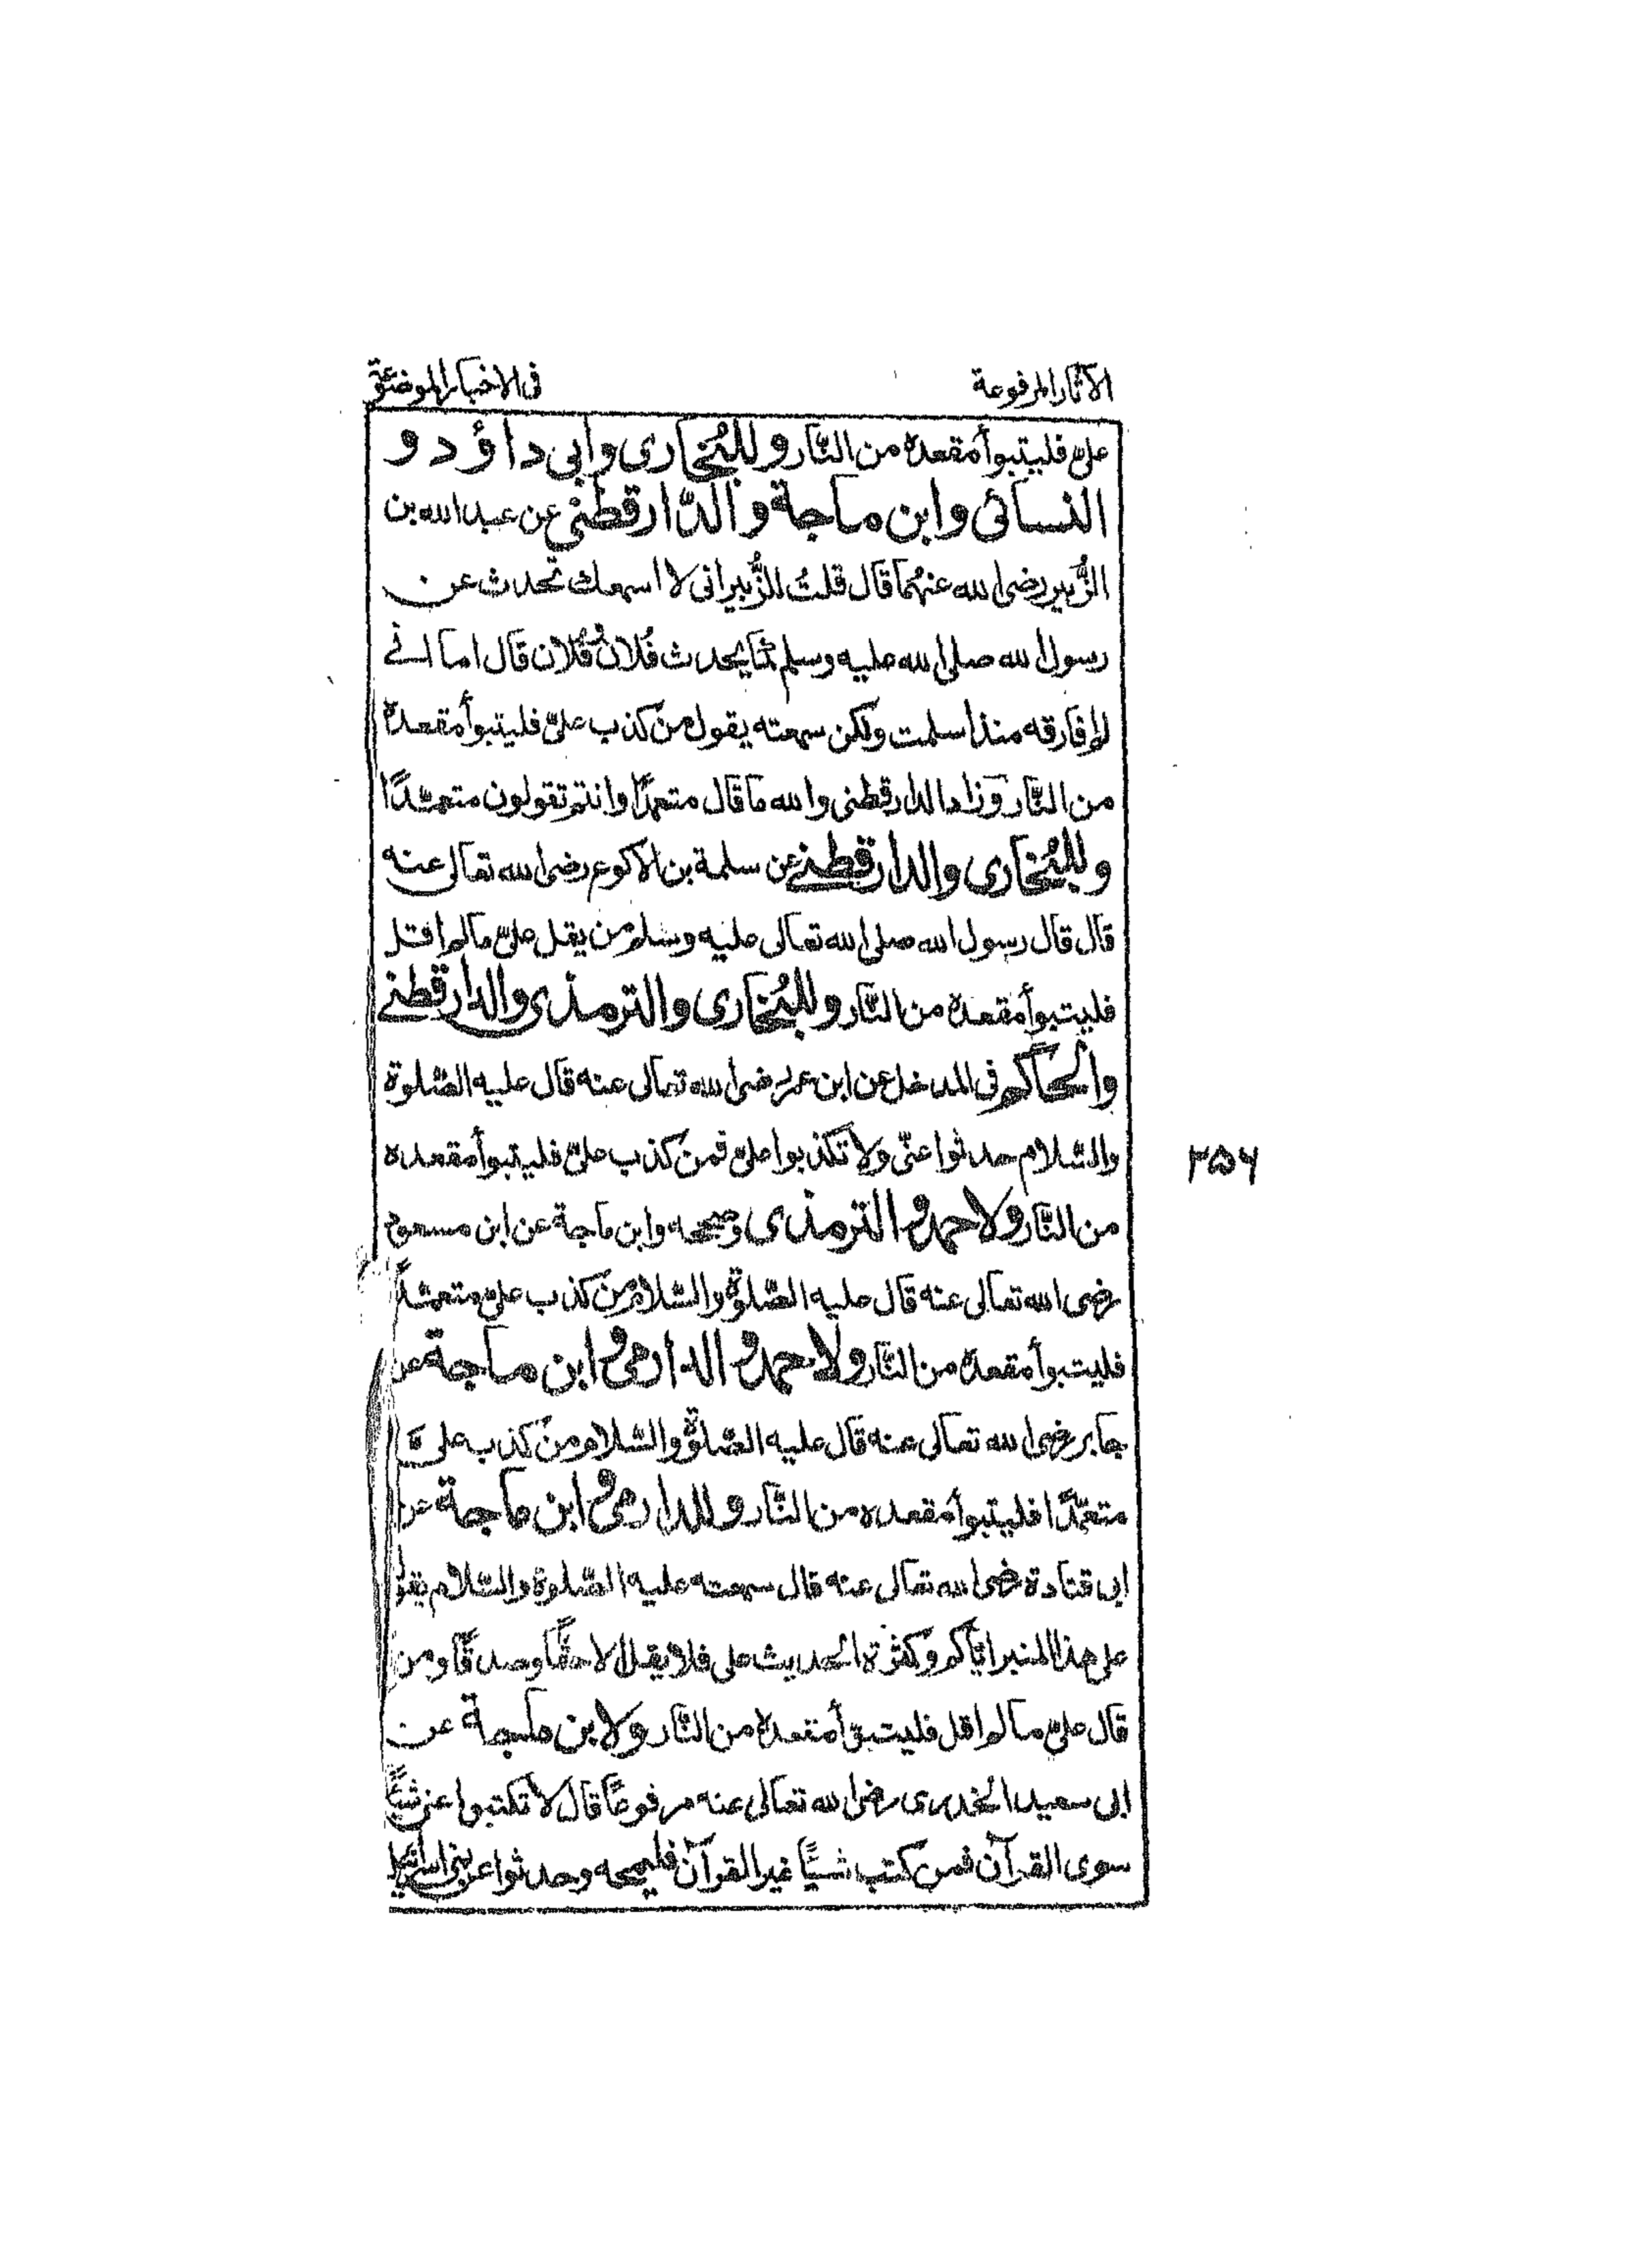 الآثار المرفوعة
فی الاخبار الموضوعة
علیّ فلیتبوأ مقعده من النّار وللبُخاری وابی داؤد و
النسائی وابن ماجة والدّارقطنی عن عبد الله بن
الزُّبیر رضی الله عنهُما قال قلتُ للزُّبیر انی لا اسمعك تحدث عن
رسول الله صلی الله علیه وسلم کما یحدث فُلانٌ فُلان قال اما انے
لم افارقه منذ اسلمت ولکن سمعته یقول من کذب علیّ فلیتبوأ مقعده
من النّار وزاد الدارقطنی والله ما قال متعمدًا وانتم تقولون متعمّدًا
وللبُخاری والدارقطنے عن سلمة بن الاکوع رضی الله تعالی عنه
قال قال رسول الله صلی الله تعالی علیه وسلم من یقل علیّ ما لم اقل
فلیتبوأ مقعده من النّار وللبُخاری والترمذی والدارقطنے
والحاکم فی المدخل عن ابن عمر رضی الله تعالی عنه قال علیه الصّلوة
والسّلام حدثوا عنّی ولا تکذبوا علیّ فمن کذب علیّ فلیتبوأ مقعده
من النّار ولاحمد والترمذی وصححه وابن ماجة عن ابن مسعود
رضی الله تعالی عنه قال علیه الصّلوة والسّلام من کذب علیّ متعمّدًا
فلیتبوأ مقعده من النّار ولاحمد والدارمی وابن ماجة عن
جابر رضی الله تعالی عنه قال علیه الصّلوة والسّلام من کذب علیّ
متعمّدًا فلیتبوأ مقعده من النّار وللدارمی وابن ماجة عن
ابی قتادة رضی الله تعالی عنه قال سمعته علیه الصّلوة والسّلام یقول
علی هذا المنبر ایّاکم وکثرة الحدیث علی فلا یقل الا حقًّا وصدقًا ومن
قال علیّ ما لم اقل فلیتبوّأ مقعده من النّار ولابن ماجة عن
ابی سعید الخدری رضی الله تعالی عنه مرفوعًا قال لا تکتبوا عنی شیئًا
سوی القرآن فمن کتب شیئًا غیر القرآن فلیمحه وحدثوا عن بنی اسرائیل
۳۵۶